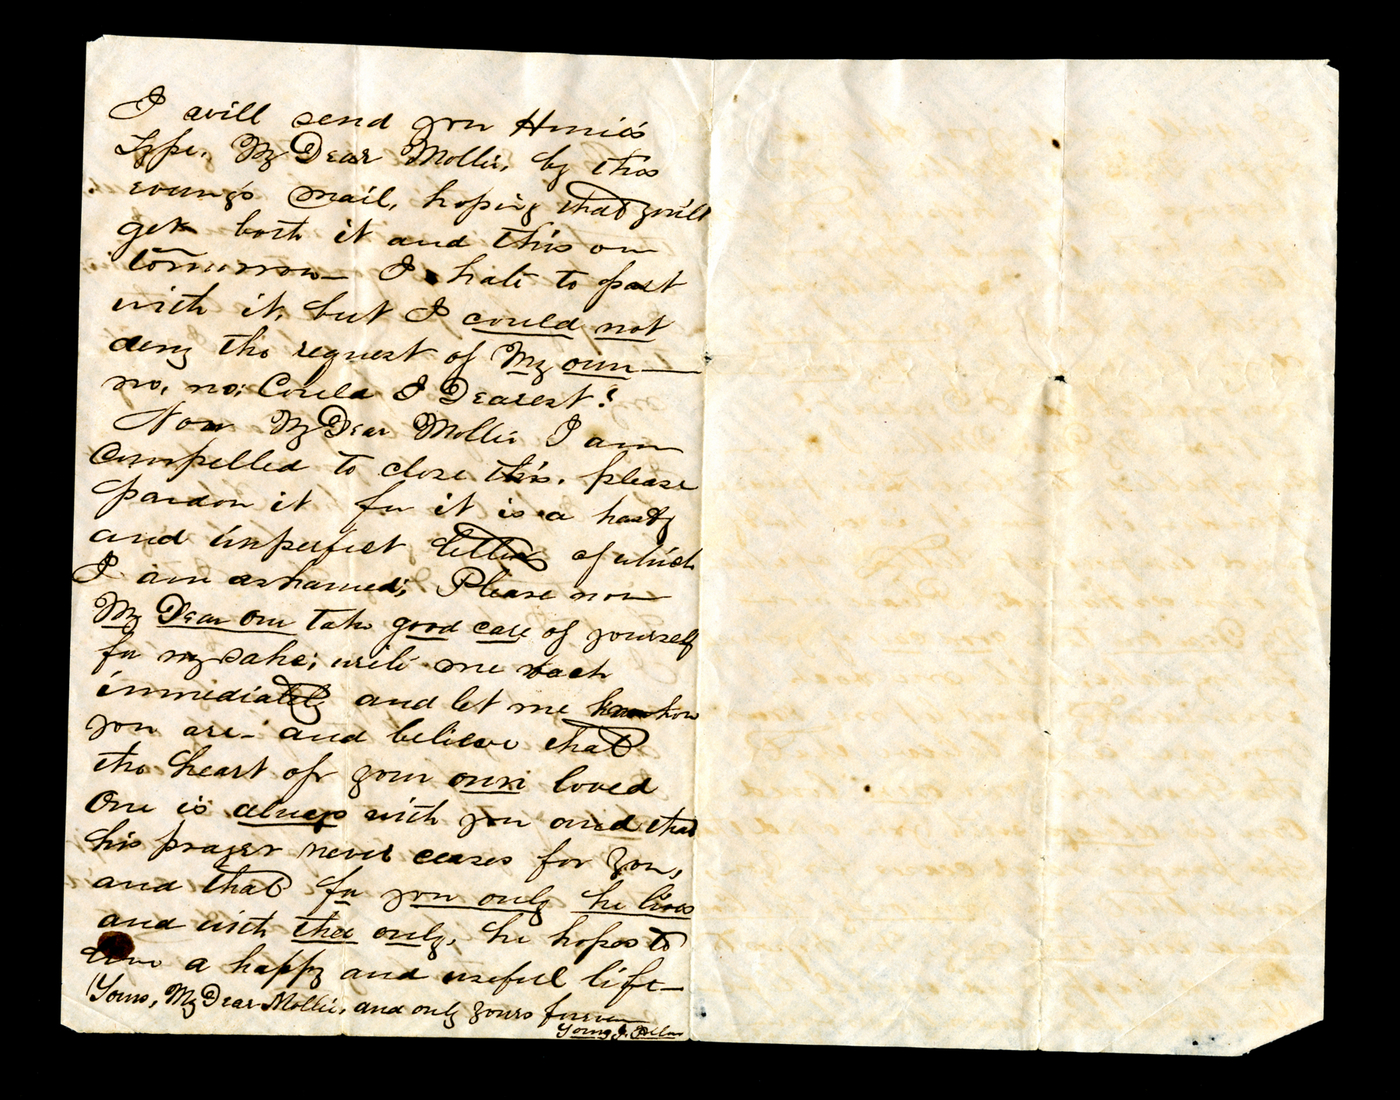 I will send you Hunie's
Type, My Dear Mollie, by this
evening's mail, hoping that you'll
get both it and this on
tomorrow— I hate to part
with it, but I could not
deny the request of My own—
no, no; Could I Dearest?
Now My Dear Mollie I am
Compelled to close this. please
pardon it for it is a hasty
and imperfect letter of which
I am ashamed; Please now
My Dear One take good care of yourself
for my sake; write me back
immediately and let me how
you are— and believe that
the heart of your own loved
One is always with you and that
his prayer never ceases for you,
and that for you only he lives
and with thee only, he hopes to
live a happy and useful life—
Yours, My Dear Mollie, and only yours forever
Young J. Allen